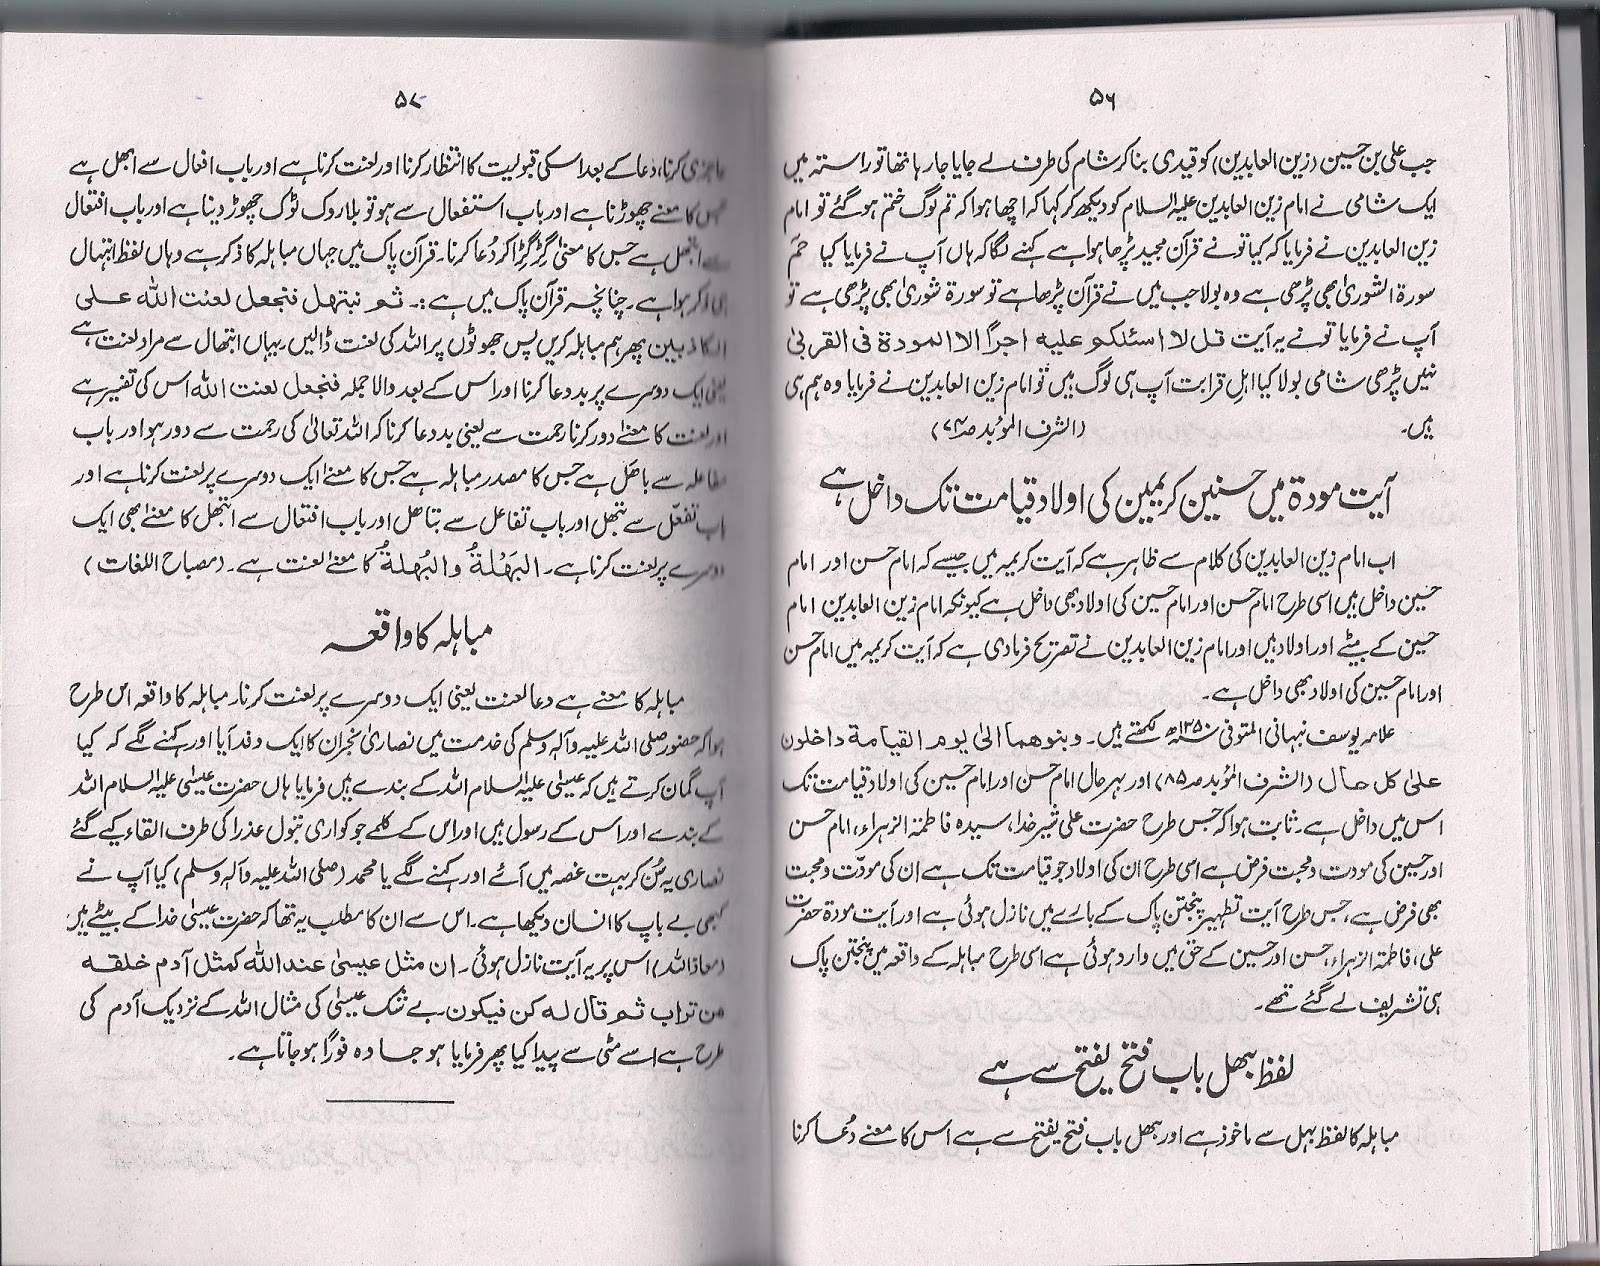 ۵۶
جب علی بن حسین (زین العابدین) کو قیدی بنا کر شام کی طرف لے جایا جا رہا تھا تو راستہ میں
ایک شامی نے امام زین العابدین علیہ السلام کو دیکھ کر کہا کہ اچھا ہوا کہ تم لوگ ختم ہو گئے تو امام
زین العابدین نے فرمایا کہ کیا تو نے قرآن مجید پڑھا ہوا ہے کہنے لگا کہ ہاں آپ نے فرمایا کیا حٰمٓ
سورۃ الشوریٰ بھی پڑھی ہے وہ بولا جب میں نے قرآن پڑھا ہے تو سورۃ شوریٰ بھی پڑھی ہے تو
آپ نے فرمایا تو نے یہ آیت قل لا اسئلکم علیہ اجراً الا المودۃ فی القربیٰ
نہیں پڑھی شامی بولا کیا اہل قرابت آپ ہی لوگ ہیں تو امام زین العابدین نے فرمایا وہ ہم ہی
ہیں۔ (الشرف المؤبد صـ۷۴)
آیت مودۃ میں حسنین کریمین کی اولاد قیامت تک داخل ہے
اب امام زین العابدین کی کلام سے ظاہر ہے کہ آیت کریمہ میں جیسے کہ امام حسن اور امام
حسین داخل ہیں اسی طرح امام حسن اور امام حسین کی اولاد بھی داخل ہے کیونکہ امام زین العابدین امام
حسین کے بیٹے اور اولاد ہیں اور امام زین العابدین نے تصریح فرما دی ہے کہ آیت کریمہ میں امام حسن
اور امام حسین کی اولاد بھی داخل ہے۔
علامہ یوسف نبہانی المتوفی ۱۳۵۰ھ لکھتے ہیں۔ وبنوھما الیٰ یوم القیامۃ داخلون
علیٰ کل حال (الشرف المؤبد صـ۸۵) اور بہر حال امام حسن اور امام حسین کی اولاد قیامت تک
اس میں داخل ہے۔ ثابت ہوا کہ جس طرح حضرت علی شیر خدا، سیدہ فاطمۃ الزہراء، امام حسن
اور حسین کی مودت و محبت فرض ہے اسی طرح ان کی اولاد جو قیامت تک ہے ان کی مودّت و محبت
بھی فرض ہے، جس طرح آیت تطہیر پنجتن پاک کے بارے میں نازل ہوئی ہے اور آیت مودۃ حضرت
علی، فاطمۃ الزہراء، حسن اور حسین کے حق میں وارد ہوئی ہے اسی طرح مباہلہ کے واقعہ میں پنجتن پاک
ہی تشریف لے گئے تھے۔
لفظ بھل باب فتح یفتح سے ہے
مباہلہ کا لفظ بہل سے ماخوذ ہے اور بھل باب فتح یفتح سے ہے اس کا معنے دُعا کرنا
۵۷
عاجزی کرنا، دعا کے بعد اسکی قبولیت کا انتظار کرنا اور لعنت کرنا ہے اور باب افعال سے ابھل ہے
جس کا معنے چھوڑنا ہے اور باب استفعال سے ہو تو بلا روک ٹوک چھوڑ دینا ہے اور باب افتعال
سے ابتھل ہے جس کا معنیٰ گِڑگِڑا کر دُعا کرنا۔ قرآن پاک میں جہاں مباہلہ کا ذکر ہے وہاں لفظ ابتہال
ہی ذکر ہوا ہے۔ چنانچہ قرآن پاک میں ہے :۔ ثم نبتہل فنجعل لعنت اللہ علی
الکاذبین پھر ہم مباہلہ کریں پس جھوٹوں پر اللہ کی لعنت ڈالیں یہاں ابتھال سے مراد لعنت ہے
یعنی ایک دوسرے پر بد دعا کرنا اور اس کے بعد والا جملہ فنجعل لعنت اللہ اس کی تفسیر ہے
اور لعنت کا معنےٰ دور کرنا رحمت سے یعنی بد دعا کرنا کہ اللہ تعالیٰ کی رحمت سے دور ہو اور باب
مفاعلہ سے باھَل ہے جس کا مصدر مباہلہ ہے جس کا معنےٰ ایک دوسرے پر لعنت کرنا ہے اور
باب تفعّل سے تبھل اور باب تفاعل سے تباھل اور باب افتعال سے ابتھل کا معنےٰ بھی ایک
دوسرے پر لعنت کرنا ہے۔ البَھْلۃُ والبُھلۃُ کا معنےٰ لعنت ہے۔ (مصباح اللغات)
مباہلہ کا واقعہ
مباہلہ کا معنے ہے دعا لعنت یعنی ایک دوسرے پر لعنت کرنا۔ مباہلہ کا واقعہ اس طرح
ہوا کہ حضور صلی اللہ علیہ وآلہ وسلم کی خدمت میں نصاریٰ نجران کا ایک وفد آیا اور کہنے لگے کہ کیا
آپ گمان کرتے ہیں کہ عیسیٰ علیہ السلام اللہ کے بندے ہیں فرمایا ہاں حضرت عیسیٰ علیہ السلام اللہ
کے بندے اور اس کے رسول ہیں اور اس کے کلمے جو کواری بتول عذرا کی طرف القاء کیے گئے
نصاریٰ یہ سُن کر بہت غصہ میں آئے اور کہنے لگے یا محمد (صلی اللہ علیہ وآلہ وسلم) کیا آپ نے
کبھی بے باپ کا انسان دیکھا ہے۔ اس سے ان کا مطلب یہ تھا کہ حضرت عیسیٰ خدا کے بیٹے ہیں
(معاذ اللہ) اس پر یہ آیت نازل ہوئی۔ ان مثل عیسیٰ عند اللہ کمثل آدم خلقہ
من تراب ثم قال لہ کن فیکون۔ بے شک عیسیٰ کی مثال اللہ کے نزدیک آدم کی
طرح ہے اسے مٹی سے پیدا کیا پھر فرمایا ہو جا وہ فوراً ہو جاتا ہے۔